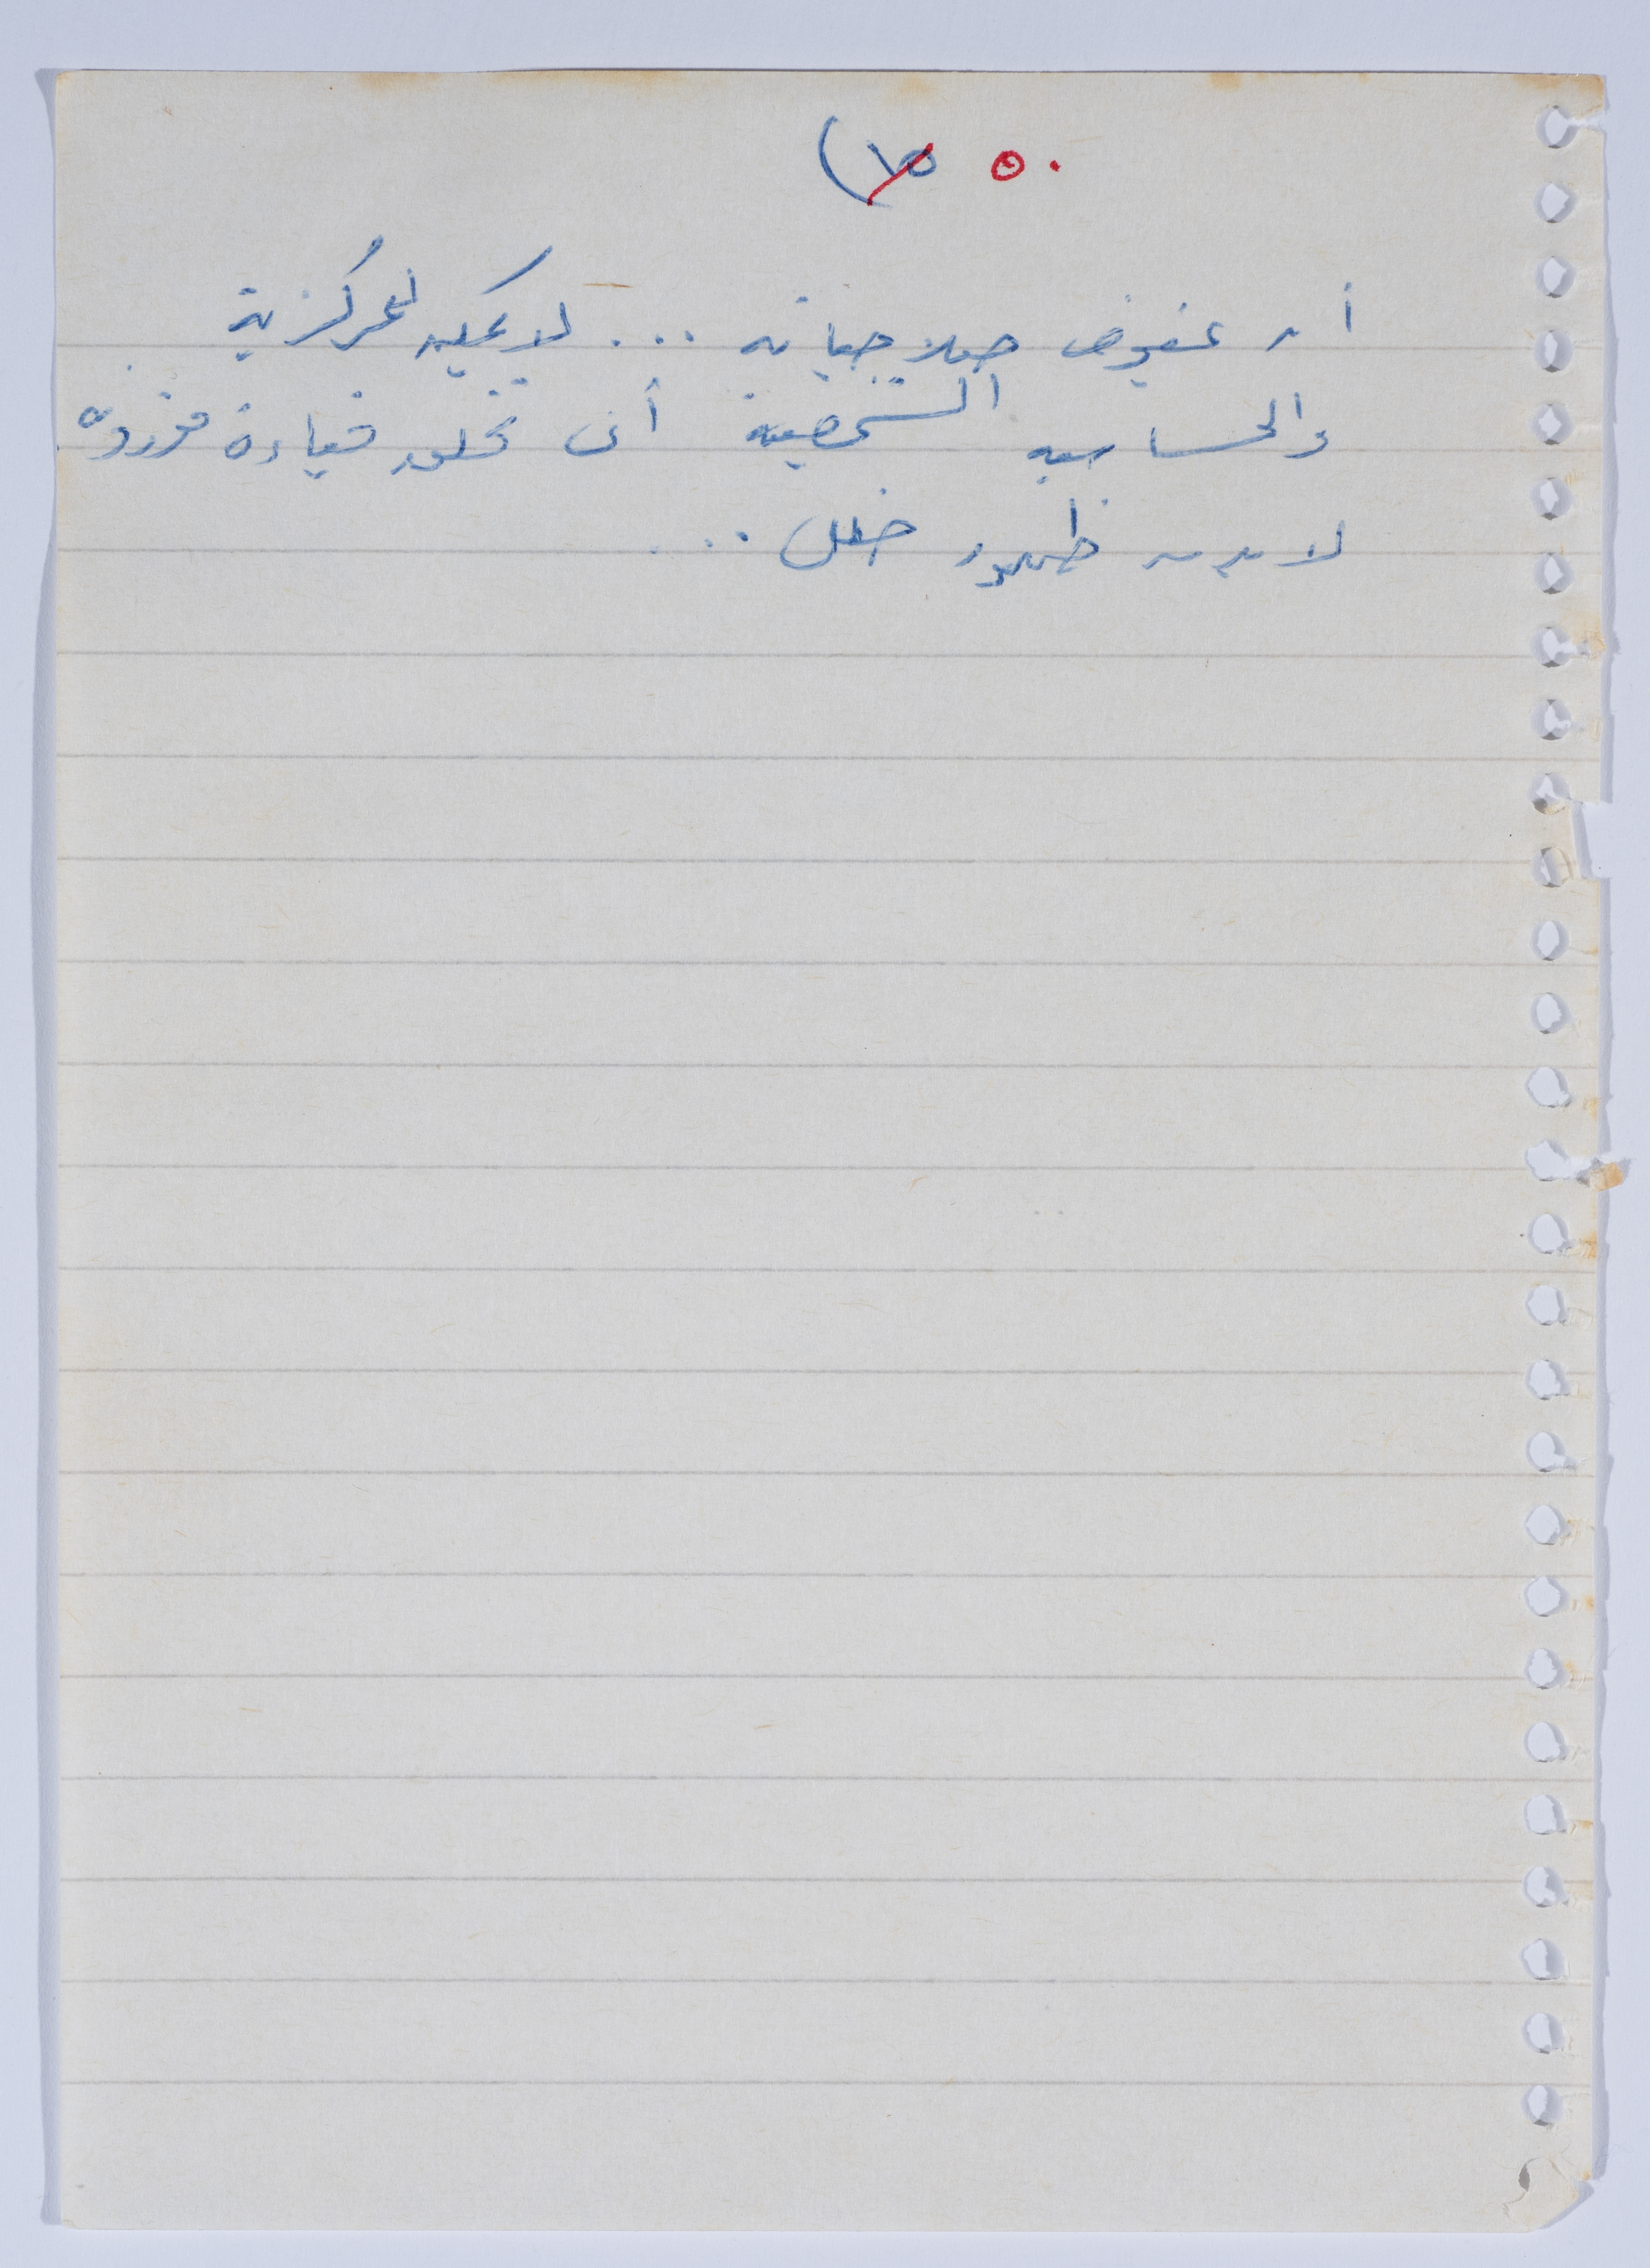 ٥٠ (١٥
أن يفوض صلاحياته ... لا يمكن للمركزية
والحساسية الشخصية أن تخلق قيادة مفرزة
لا بد من ظهور خلل ...